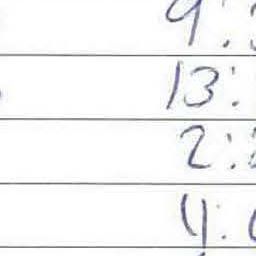 9:
13:
2:
4: